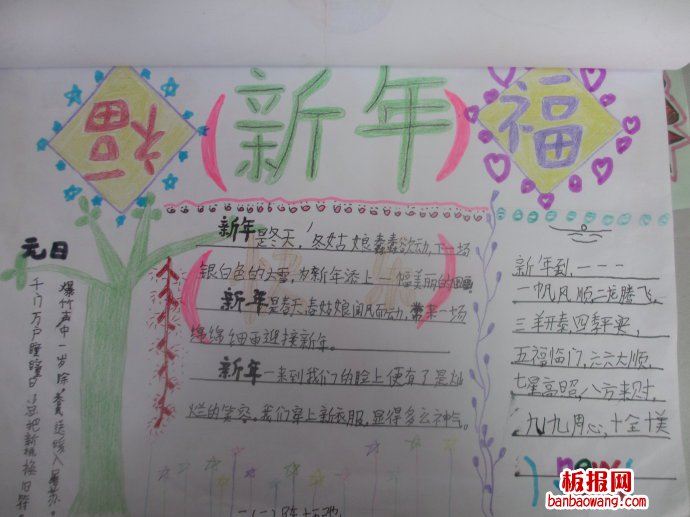 福
新年
福
元日
爆竹声中一岁除,春风送暖入屠苏。
千门万户曈曈日,总把新桃换旧符。
新年是冬天,冬姑娘蠢蠢欲动,下一场
银白色的大雪,为新年添上一幅美丽的图画
新年是春天春姑娘闻风而动,带来一场
绵绵细雨迎接新年。
新年一来到我们的脸上便有了是灿
烂的笑容。我们穿上新衣服,显得多么神气。
新年到,———
一帆风顺二龙腾飞,
三羊开泰四季平安,
五福临门,六六大顺,
七星高照,八方来财,
九九同心,十全十美
new
板报网
banbaowang.com